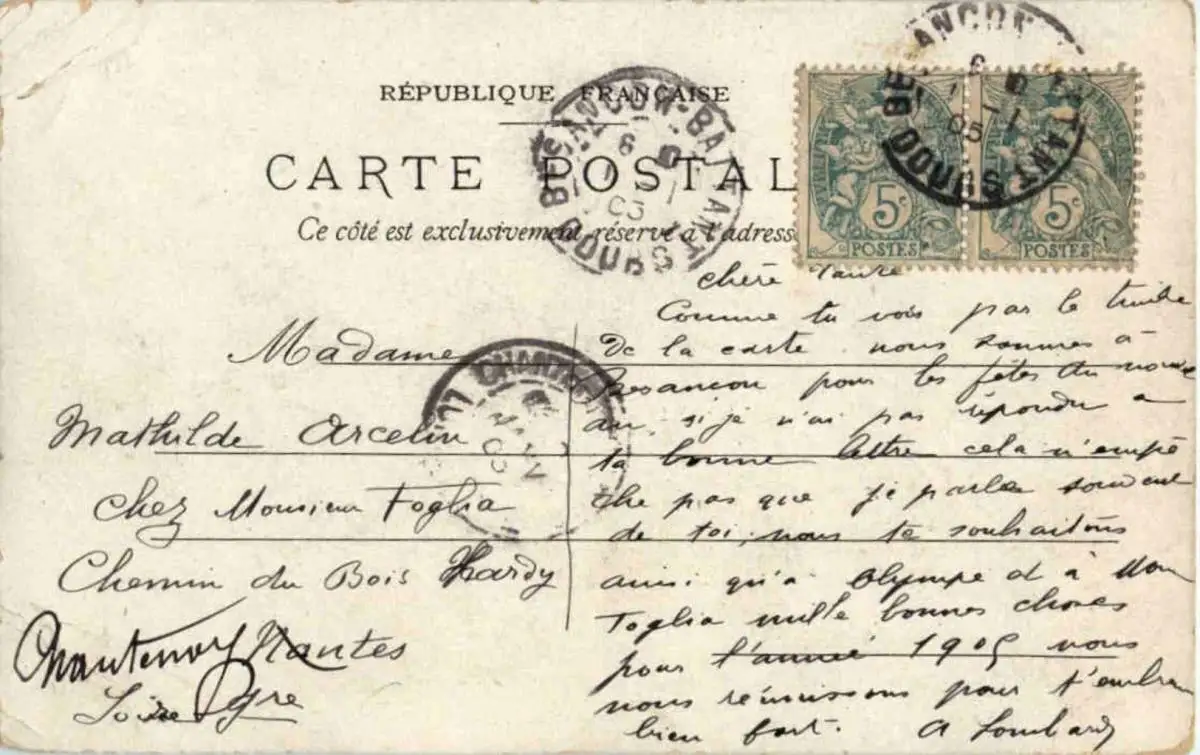 RÉPUBLIQUE FRANÇAISE
CARTE POSTALE
Ce côté est exclusivement réservé à l'adresse
BESANÇON-BATTANT
DOUBS
BESANÇON BATTANT
DOUBS
5c 5c
POSTES POSTES
Madame
Mathilde Arcelin
chez Monsieur Foglia
Chemin du Bois Hardy
Chantenay Nantes
Loire
chère Tante
Comme tu vois par le timbre
de la carte nous sommes à
Besançon pour les fêtes du nouvel
an, si je n'ai pas répondu a
ta bonne lettre cela n'empê
che pas que je parle souvent
de toi, nous te souhaitons
ainsi qu'a Olympe et à Mon
Foglia mille bonnes choses
pour l'année 1905 nous
nous réunissons pour t'embrasser
bien fort. A Lombard